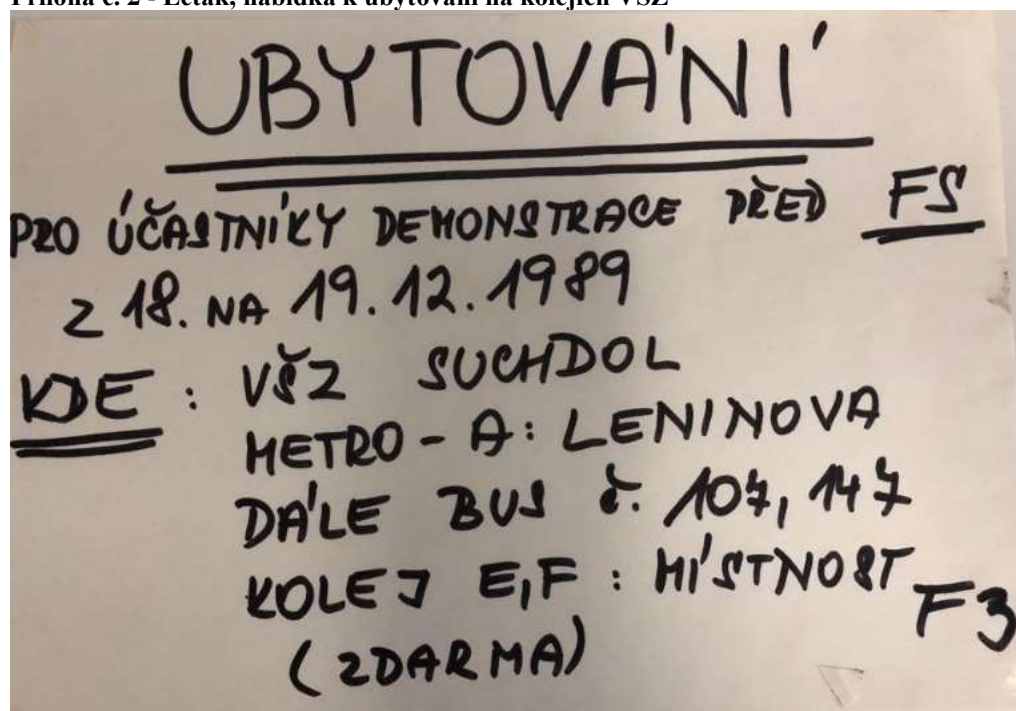 Příloha č. 2 - Leták, nabídka k ubytování na kolejích VŠZ
UBYTOVÁNÍ
PRO ÚČASTNÍKY DEMONSTRACE PŘED FS
Z 18. NA 19.12.1989
KDE : VŠZ SUCHDOL
METRO - A: LENINOVA
DÁLE BUS č. 107, 147
KOLEJ E,F : MÍSTNOST F3
(ZDARMA)